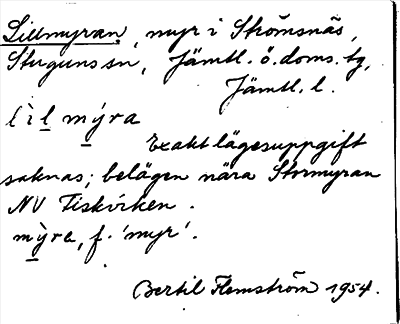 Lillmyran, myr i Strömsnäs,
Stuguns sn, Jämtl. ö. doms. tg,
Jämtl. l.
lìl mýra
Exakt lägesuppgift
saknas; belägen nära Stormyran
NV Fiskviken.
mỳra, f. 'myr'.
Bertil Flemström 1954.